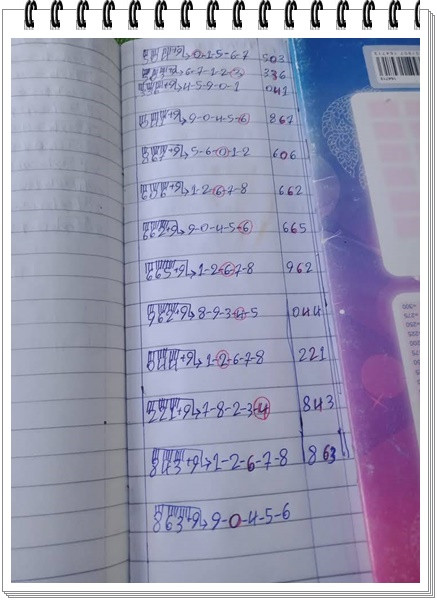 +9 0-1-5-6-7 503
+9 6-7-1-2- 336
336+9 4-5-9-0-1 041
041+9 9-0-4-5-6 867
867+9 5-6-0-1-2 606
606+9 1-2-6-7-8 662
662+9 9-0-4-5-6 665
665+9 1-2-6-7-8 962
962+9 8-9-3-4-5 044
044+9 1-2-6-7-8 221
221+9 7-8-2-3-4 843
843+9 1-2-6-7-8 863
863+9 9-0-4-5-6